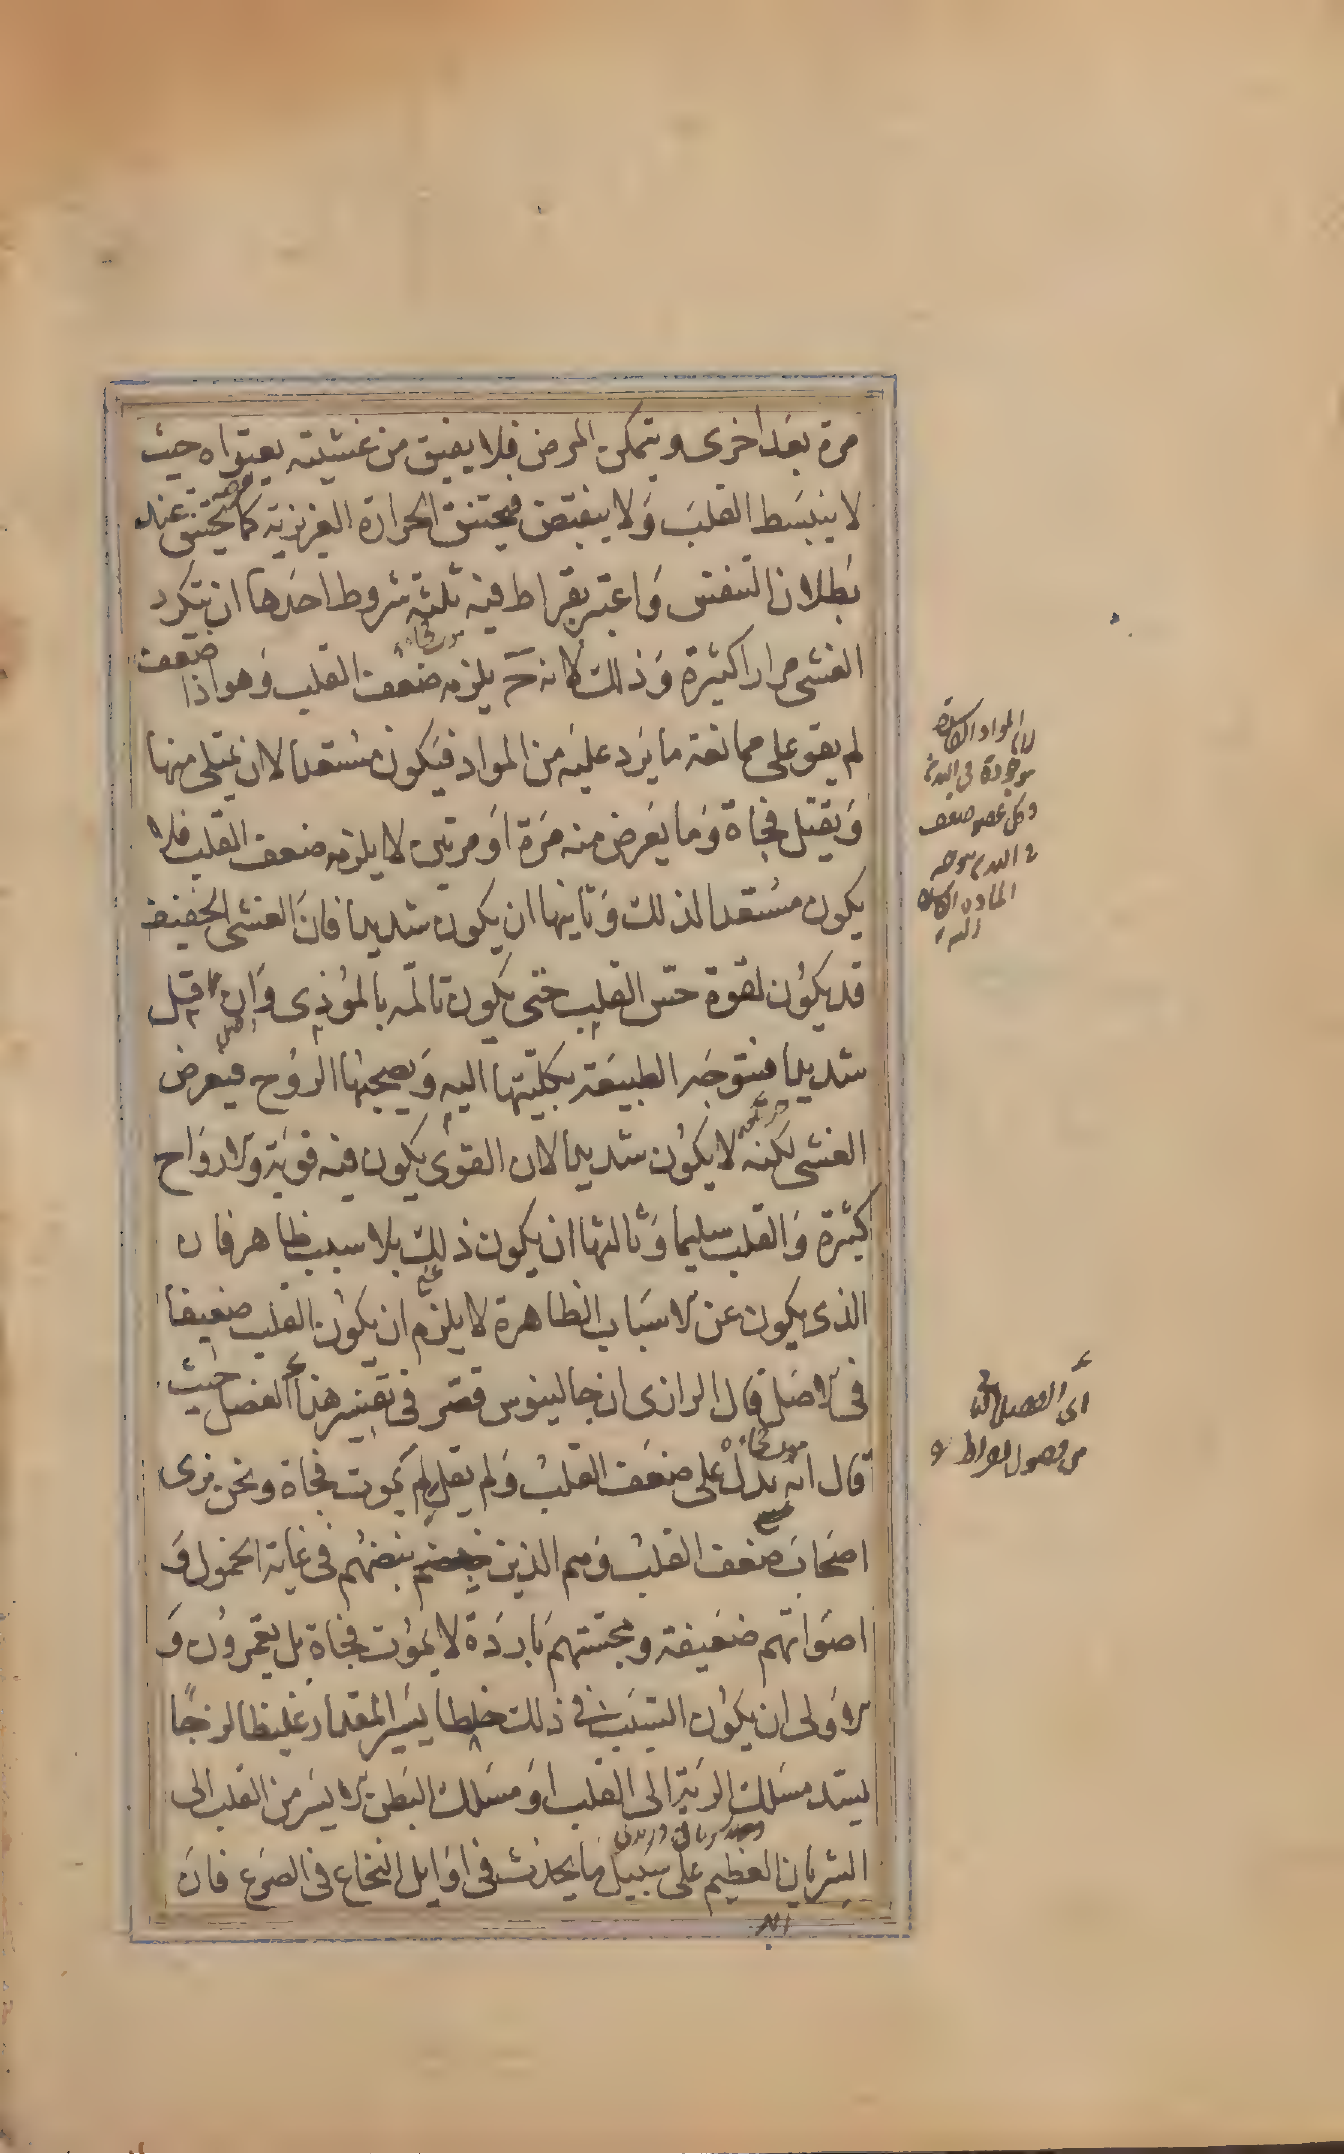 مرة بعد اخرى ويتمكن المرض فلا يفيق من غشيته يعتواه حيث
لا ينبسط القلب ولا ينقبض فيحتنق الحرارة الغريزية كما يختنق عند
بطلان التنفس واعتبر بقراط فيه ثلثة شروط احدها ان يتكرر
الغشى مرارا كثيرة وذلك لانه ح يلزمه ضعف القلب وهو اذا ضعف
لم يقو على ممانعة ما يرد عليه من المواد فيكون مستعدا لان يمتلى منها
ويقتل فجاة وما يعرض منه مرة او مرتين لا يلزمه ضعف القلب فلا
يكون مستعدا لذلك وثانيها ان يكون شديدا فان الغشى الخفيف
قد يكون لقوة حس القلب حتى يكون تالمه بالموذى وان قل
شديدا فيتوجه الطبيعة بكليتها اليه ويصحبها الروح فيعرض
الغشى لكنه لا يكون شديدا لان القوى يكون فيه قوية والارواح
كثيرة والقلب سليما وثالثها ان يكون ذلك بلا سبب ظاهر فان
الذى يكون عن الاسباب الظاهرة لا يلزم ان يكون القلب ضعيفا
فى الاصل قال الرازى ان جالينوس قصر فى تفسير هذا الفصل حيث
قال انه يدل على ضعف القلب ولم يقل لم يموت فجاة ونحن نرى
اصحاب ضعف القلب وهم الذين نبضهم فى غاية الخمول و
اصواتهم ضعيفة ومجستهم باردة لا يموت فجاة بل يعمرون و
الاولى ان يكون السبب فى ذلك خلطا يسير المقدار غليظا لزجا
يسد مسلك الرية الى القلب او مسلك البطن الايسر من القلب الى
الشريان العظيم على سبيل ما يحدث فى اوايل النخاع فى الصرع فان
لان المواد
موجودة فى البدن
وكل عضو ضعف
المادة
اليه
اى الفصل
من فصول بقراط